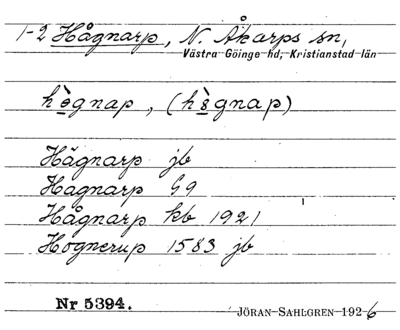 1-2 Hågnarp, N. Åkarps sn,
Västra Göinge hd, Kristianstad län
Hågnarp jb
Hagnarp G9
Hågnarp kb 1921
Hognerup 1583 jb
Nr 5394.
JÖRAN SAHLGREN 1926